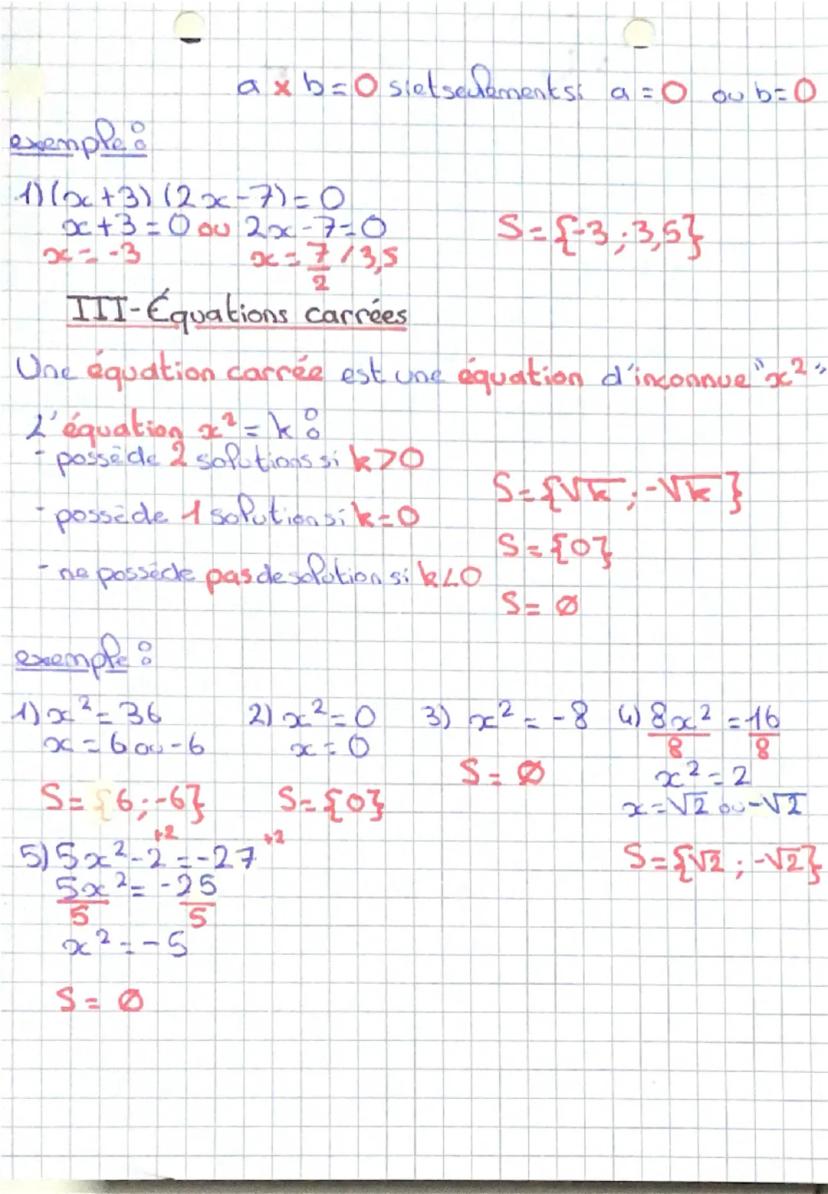 a × b = 0 si et seulement si a = 0 ou b = 0
exemple :
1) (x+3) (2x-7) = 0
x+3 = 0 ou 2x-7=0
x = -3 x = 7/2 / 3,5
S = {-3 ; 3,5}
III- Équations carrées
Une équation carrée est une équation d'inconnue "x²"
L'équation x² = k :
- possède 2 solutions si k>0
S = {√k ; -√k}
- possède 1 solution si k=0
S = {0}
- ne possède pas de solution si k<0
S = ∅
exemple :
1) x² = 36 2) x² = 0 3) x² = -8 4) 8x²/8 = 16/8
x = 6 ou -6 x = 0 S = ∅ x² = 2
x = √2 ou -√2
S = {6 ; -6} S = {0}
S = {√2 ; -√2}
+2 +2
5) 5x² - 2 = -27
5x²/5 = -25/5
x² = -5
S = ∅